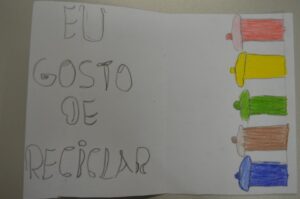 EU
GOSTO
DE
RECICLAR